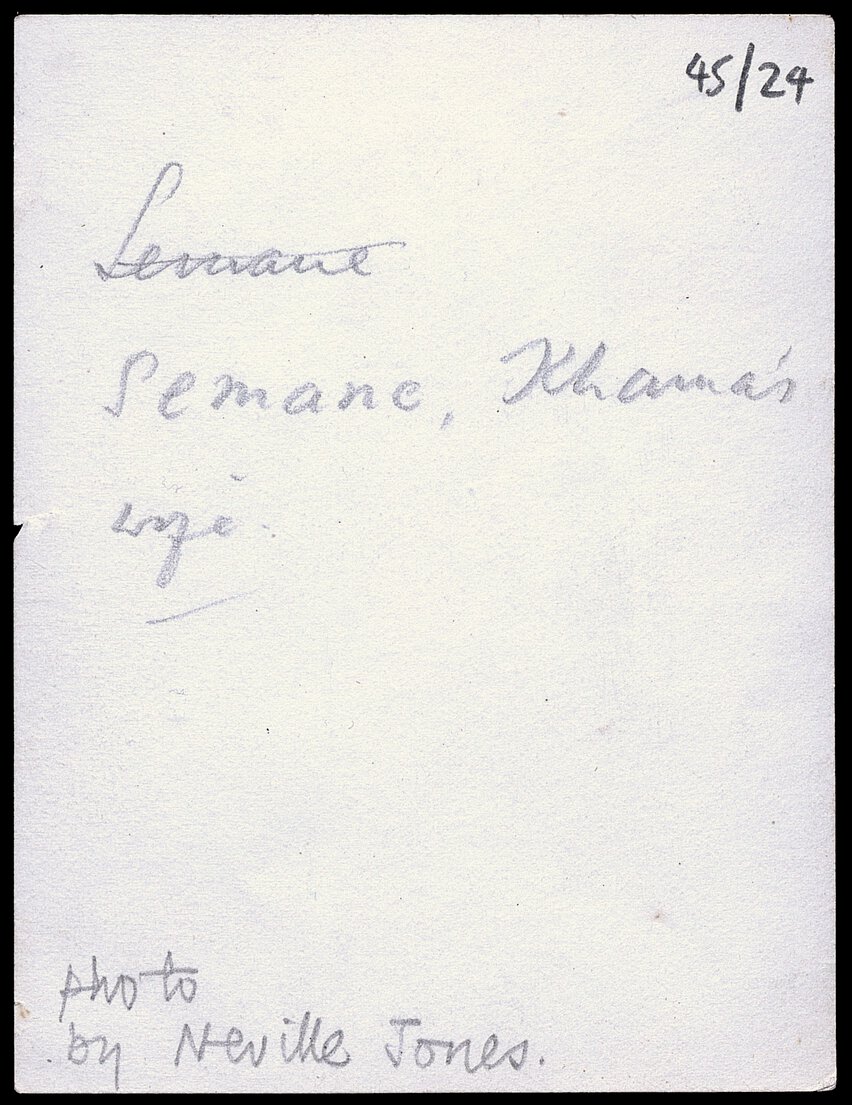 45/24
Semane
Semane, Khama's
wife.
photo
by Neville Jones.